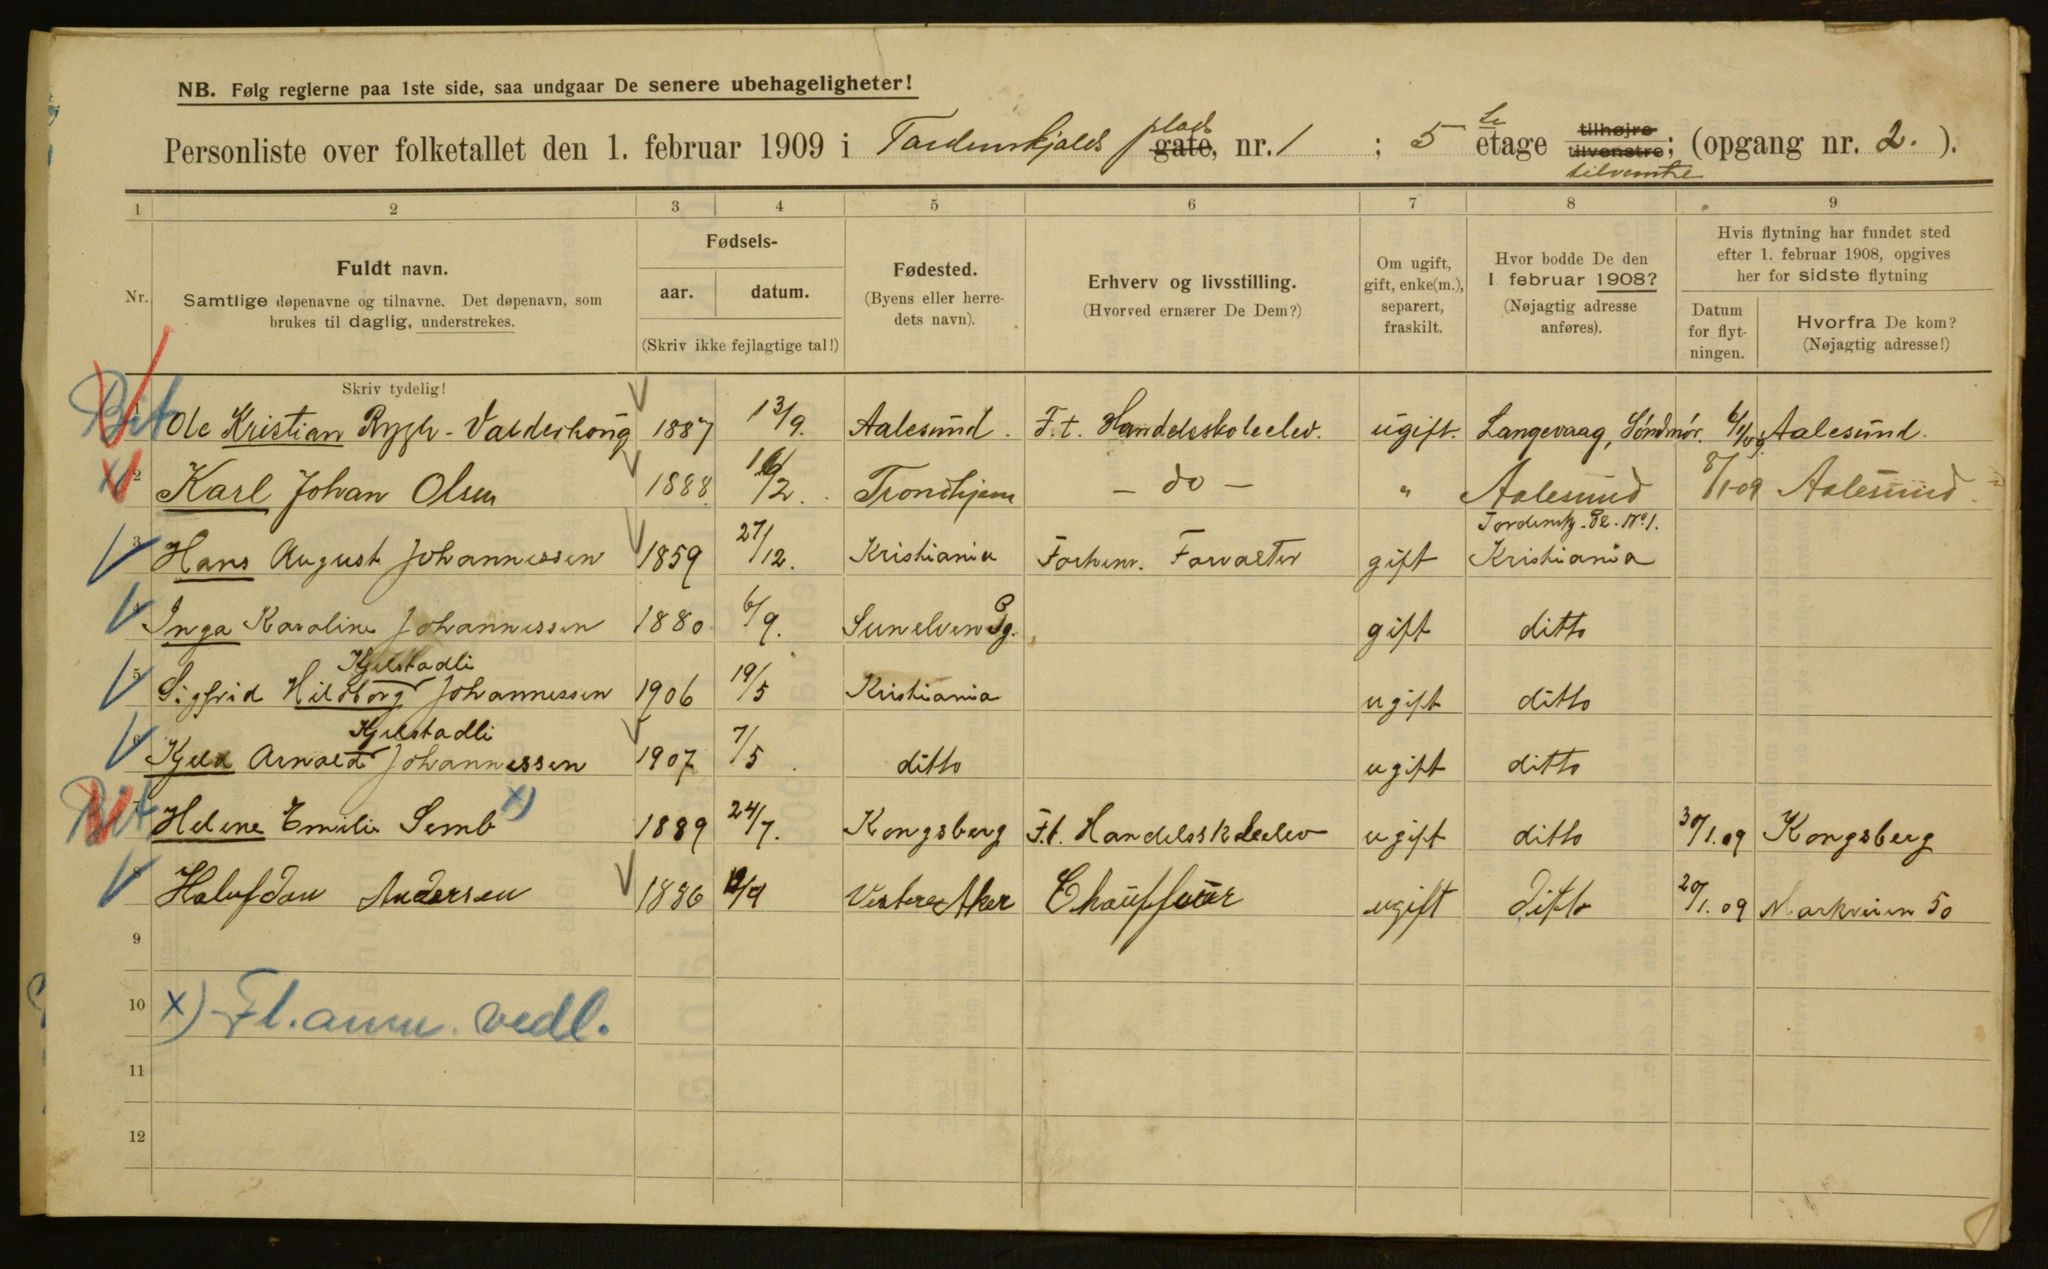 NB. Følg reglerne paa 1ste side, saa undgaar De senere ubehageligheter!
Personliste over folketallet den 1. februar 1909 i Tordenskjolds plads gate, nr. 1 ; 5 te etage tilhøjre tilvenstre; tilvenstre (opgang nr. 2. ).
1 2 3 4 5 6 7 8 9
Nr.
Fuldt navn.
Samtlige døpenavne og tilnavne. Det døpenavn, som
brukes til daglig, understrekes.
Skriv tydelig!
Fødsels-
aar. datum.
(Skriv ikke fejlagtige tal!)
Fødested.
(Byens eller herre-
dets navn).
Erhverv og livsstilling.
(Hvorved ernærer De Dem?)
Om ugift,
gift, enke(m.),
separert,
fraskilt.
Hvor bodde De den
1. februar 1908?
(Nøjagtig adresse
anføres).
Hvis flytning har fundet sted
efter 1. februar 1908, opgives
her for sidste flytning
Datum
for flyt-
ningen.
Hvorfra De kom?
(Nøjagtig adresse!)
Bet 1 Ole Kristian Rygh-Valderhoug 1887 13/9. Aalesund. F.t. Handelsskoleelev. ugift. Langevaag, Søndmør. 6/1/09 Aalesund.
x) 2 Karl Johan Olsen 1888 /2. Trondhjem — do — " Aalesund 8/1-09 Aalesund.
Tordenskj. Pl. No 1.
3 Hans August Johannessen 1859 27/12. Kristiania Forhenv. Forvalter gift Kristiania
4 Inga Karoline Johannessen 1880 6/9. Sunelven Pg. gift ditto
Kjelstadli
5 Sigfrid Hildborg Johannessen 1906 19/5 Kristiania ugift ditto
Kjelstadli
6 Kjell Arnold Johannessen 1907 7/5 ditto ugift ditto
Bet 7 Helene Emilie Semb x) 1889 24/7. Kongsberg F.t. Handelsskoleelev ugift ditto 30/1.09 Kongsberg
8 Halfdan Andersen 1886 /9 Vestre Aker Chauffeur ugift ditto 20/1.09 Markveien 50
9
10 x) Fl. anm. vedl.
11
12